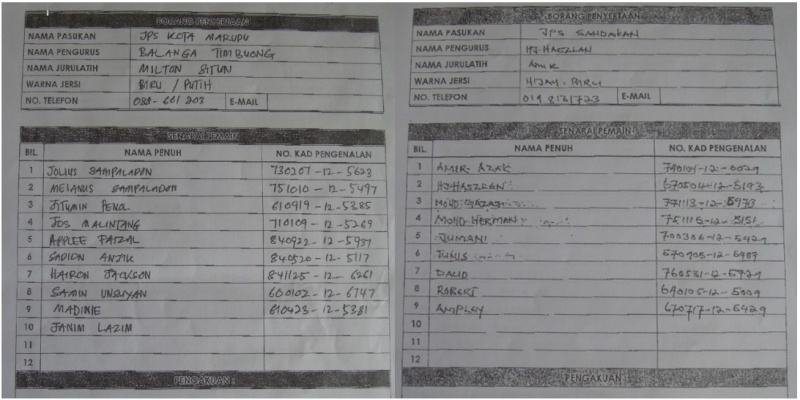 BORANG PENYERTAAN
NAMA PASUKAN JPS KOTA MARUDU
NAMA PENGURUS BALANGA TIMBUONG
NAMA JURULATIH MILTON SITUN
WARNA JERSI BIRU / PUTIH
NO. TELEFON 088-661 203 E-MAIL
SENARAI PEMAIN
BIL. NAMA PENUH NO. KAD PENGENALAN
1 JOLIUS SAMPALADON 730207-12-5623
2 MEIANUS SAMPALADON 751010-12-5497
3 JITUMIN PENOL 610919-12-5385
4 JOS MALINTANG 710109-12-5269
5 APPLEE FAIZAL 840922-12-5937
6 SADION ANJIK 840520-12-5117
7 HAIRON JACKSON 841125-12-6261
8 SAMIN UNSUYAN 600102-12-6747
9 MADINIE 610423-12-5381
10 JANIM LAZIM
11
12
PENGAKUAN :
BORANG PENYERTAAN
NAMA PASUKAN JPS SANDAKAN
NAMA PENGURUS HJ. HASZLAN
NAMA JURULATIH AMIR
WARNA JERSI HIJAU - BIRU
NO. TELEFON 019 8131723 E-MAIL
SENARAI PEMAIN
BIL. NAMA PENUH NO. KAD PENGENALAN
1 AMIR AZAK
2 HJ. HASZLAN 670504-12-5193
3 MOHD 771113-12-5973
4 MOHD HERMAN 751115-12-5151
5 JUMANI 700306-12-5429
6 JUNUS
7 DAUD 760531-12-5929
8 ROBERT 640105-12-5009
9 AMPLOY 670717-12-5429
10
11
12
PENGAKUAN